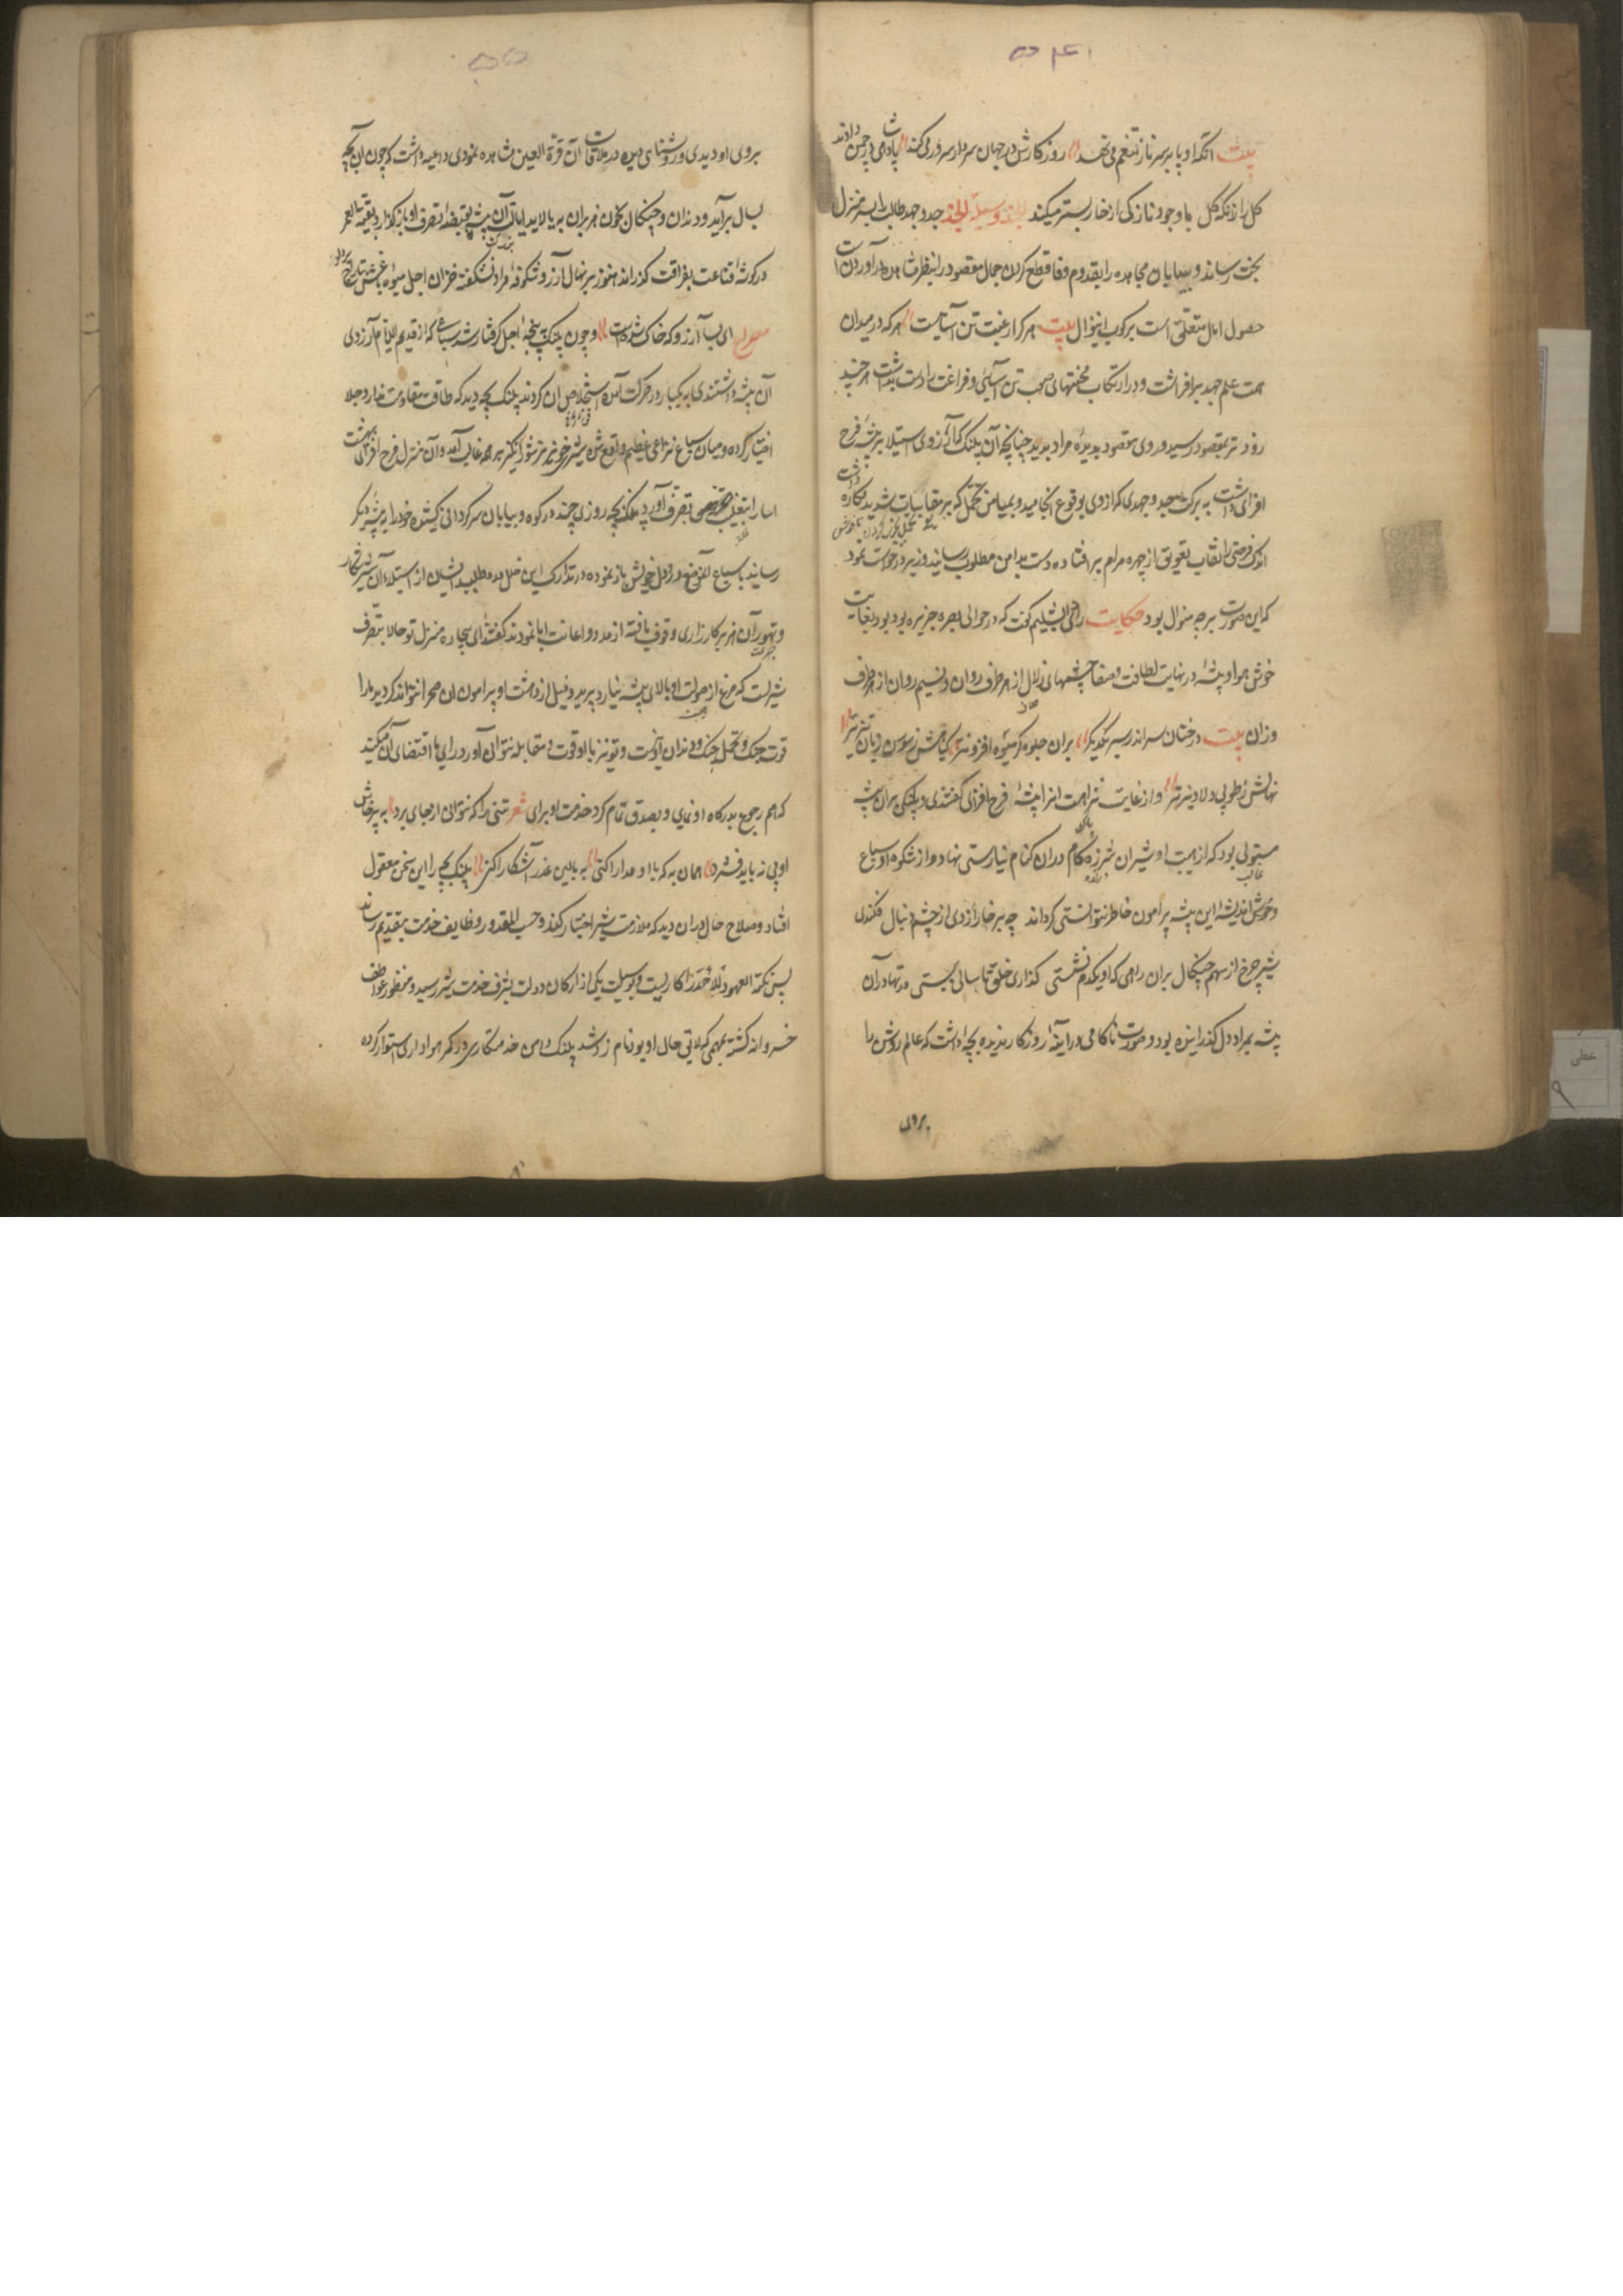 بیت آنکه او پا بر سر ناز و تنعم می نهد روزگارش در جهان سردار و سرور می کند پادشاهی در چمن دادند
گل را زانکه گل با وجود نازکی از خار بستر میکند جد و جهد طالب را بسر منزل
بخت رساند و بیابان مجاهده را بقدم وفا قطع کردن جمال مقصود را بنظر مشاهده درآوردن است
حصول امل متعلق است برکوب اینحوال بیت هر که از رغبت تن آسانیست هر که در میدان
همت علم جهد برافراشت و در ارتکاب محنتهای صعب تن آسانی و فراغت را دست بداشت هر چند
زودتر بمقصود رسید و روی مقصود بدیده مراد بدید چنانچه آن پلنگ که آرزوی استیلا بر بیشه فرح
افزای داشت به برکت جد و جهدی که از وی بوقوع انجامید و بمیامن تحمل که بر مقاسات شدید
اندک فرصتی را نقاب تعویق از چهره مرام بر افتاده دست بدامن مطلوب رسانید وزیر درخواست نمود
که این صورت بر چه منوال بود حکایت رای دابشلیم گفت که در حوالی بصره جزیره بود بغایت
خوش هوا و بیشه در نهایت لطافت و صفا چشمهای زلال از هر طرف روان و نسیم روان از هر طرف
وزان بیت درختان سر اندر سر یکدیگر بران جلوه گر میوه
نهالش ز طوبی دلاویزتر و از غایت نزاهت آنرا بیشه فرح افزای گفتندی و پلنگی بران بیشه
مستولی بود که از هیبت او شیران شرزه گام دران کنام نیارستی نهاد و از شکوه او سباع
و وحوش اندیشه این بیشه پیرامون خاطر نتوانستی گرداند چو بر خارا زدی از خشم دنبال فکندی
شیر چرخ از سهم چنگال بران راهی که او یکدم نشستی گذاری خلق تا سالی ببستی مدتها در آن
بیشه بمراد دل گذرانیده بود و صورت ناکامی در آینه روزگار ندیده بچه داشت که عالم روشن را
بروی
بروی او دیدی و روشنای دیده در ملاقات آن قرة العین مشاهده نمودی داعیه داشت که چون آن بچه
بسال برآید و دندان و چنگال بخون هزبران بیالاید ایالت آن بیشه بقبضه تصرف او بازگذارد و بقیة العمر
در گوشه قناعت بفراغت گذراند هنوز بر نهال آرزو شکوفه مراد نشکفته خزان اجل میوه
مصراع ای بسا آرزو که خاک شده است و چون پلنگ بپنجه اجل گرفتار شد سباعی که از قدیم الایام آرزوی
آن بیشه داشتندی به یکبار در حرکت آمده استخلاص آن کردند پلنگ بچه دید که طاقت مقاومت ندارد جلا
اختیار کرده و میان سباع نزاعی عظیم واقع شد شیر خونریز شورانگیز بر همه غالب آمد و آن منزل فرح افزای بهشت
آسا را بتغلب بتصرف آورد پلنگ بچه روزی چند در کوه و بیابان سرگردانی کشیده خود را به بیشه دیگر
رسانید با سباع آن موضع درد دل خویش باز نموده در تدارک این خلل مدد طلبید ایشان از استیلاء آن شیر شکار
و تهور آن هزبر کارزاری وقوف یافته از مدد و اعانت ابا نمودند گفتند ای بیچاره منزل تو حالا بتصرف
شیریست که مرغ از صولت او بالای بیشه نیارد پرید و فیل از دهشت او پیرامون آن صحرا نتواند گردید ما را
قوت جنگ و تحمل چنگ و دندان او نیست و تو نیز با او قوت و مقابله نتوانی آورد رای ما اقتضای آن میکند
که هم رجوع بدرگاه او نمایی و بصدق تمام گرد خدمت او برآی شعر تنی را که نتوانی از جای برد به پرخاش
او پی نه باید فشرد همان به که با او مدارا کنی به بالین عذر آشکارا کنی پلنگ بچه را این سخن معقول
افتاد و صلاح حال دران دید که ملازمت شیر اختیار کند و حسب المقدور وظایف خدمت بتقدیم رساند
پس نکتة العود احمد را کار بست و بوسیلت یکی از ارکان دولت بشرف خدمت شیر رسید و منظور عواطف
خسروانه گشته بمهمی که لایق حال او بود نامزد شد پلنگ دامن خدمتکاری در کمر هواداری استوار کرده
خطی
۹